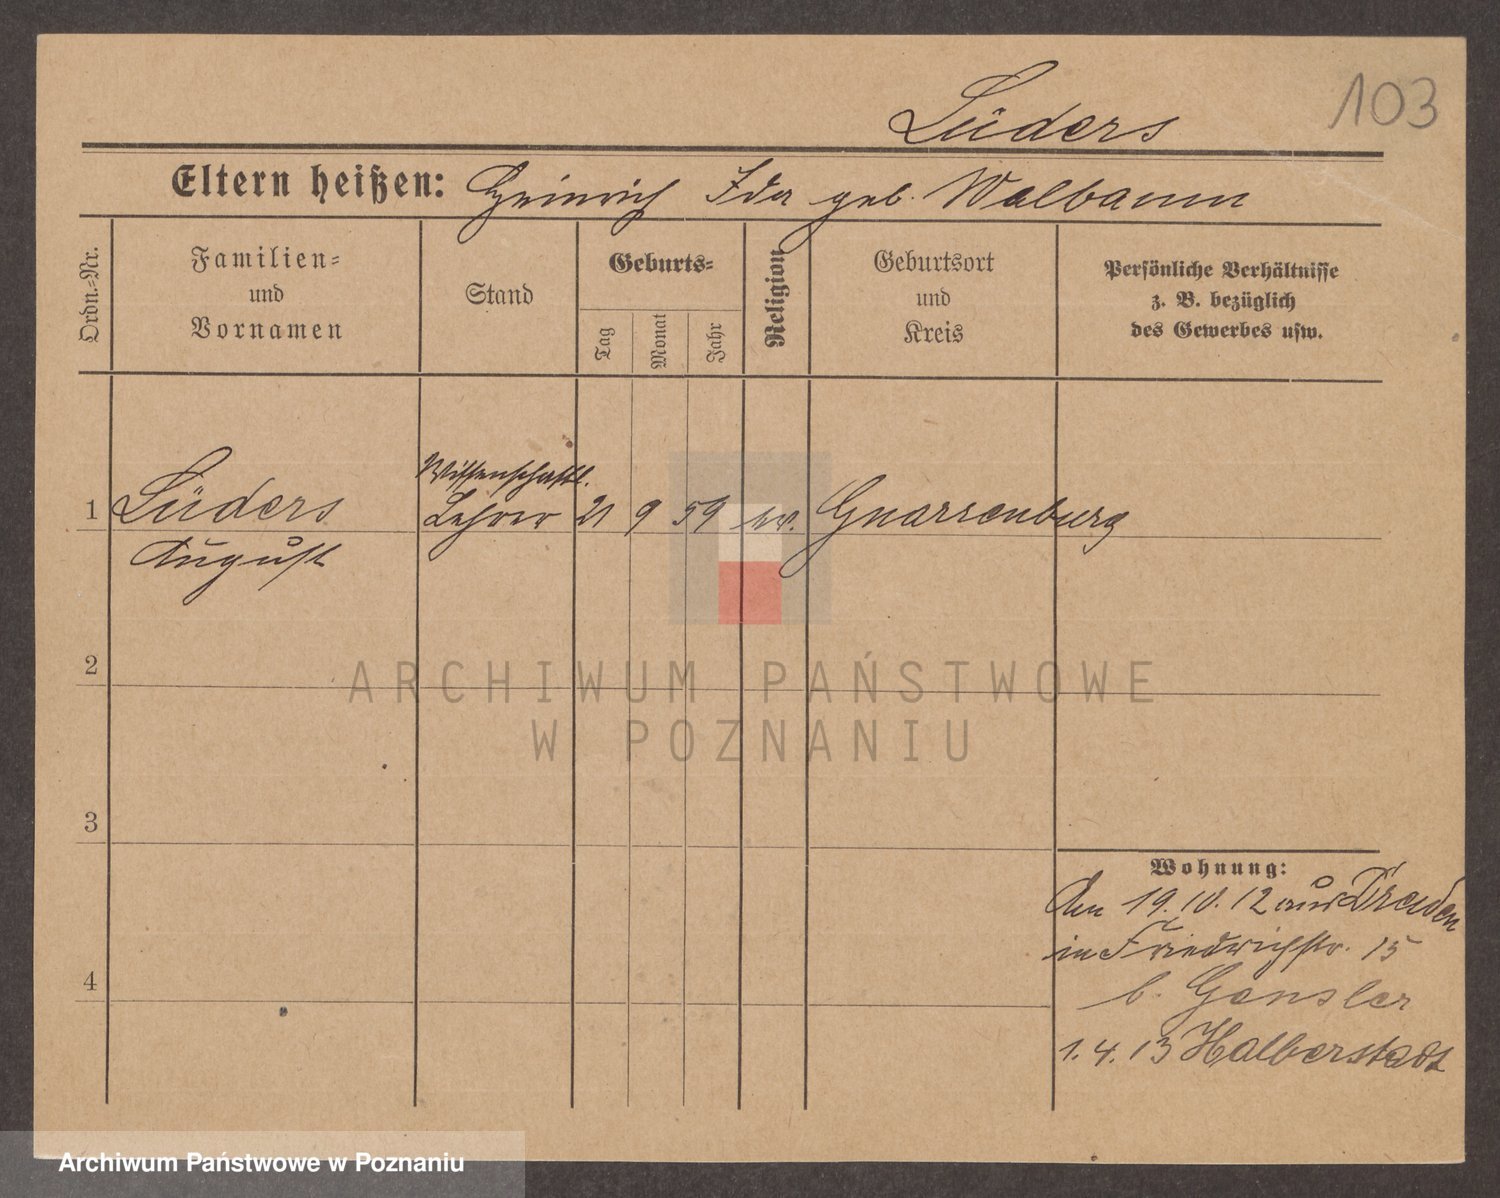 103
Lüders
Eltern heißen: Heinrich Ida geb. Walbaum
Ordn.-Nr.
Familien-
und
Vornamen
Stand
Geburts-
Tag
Monat
Jahr
Religion
Geburtsort
und
Kreis
Persönliche Verhältnisse
z. B. bezüglich
des Gewerbes usw.
Wissenschaftl.
1 Lüders Lehrer 21 9 59 ev. Gnarrenburg
August
2
ARCHIWUM PAŃSTWOWE
W POZNANIU
3
Wohnung:
Am 19.10.12 aus Dresden
in Friedrichstr. 15
4
b. Gensler
1.4.13 Halberstadt
Archiwum Państwowe w Poznaniu